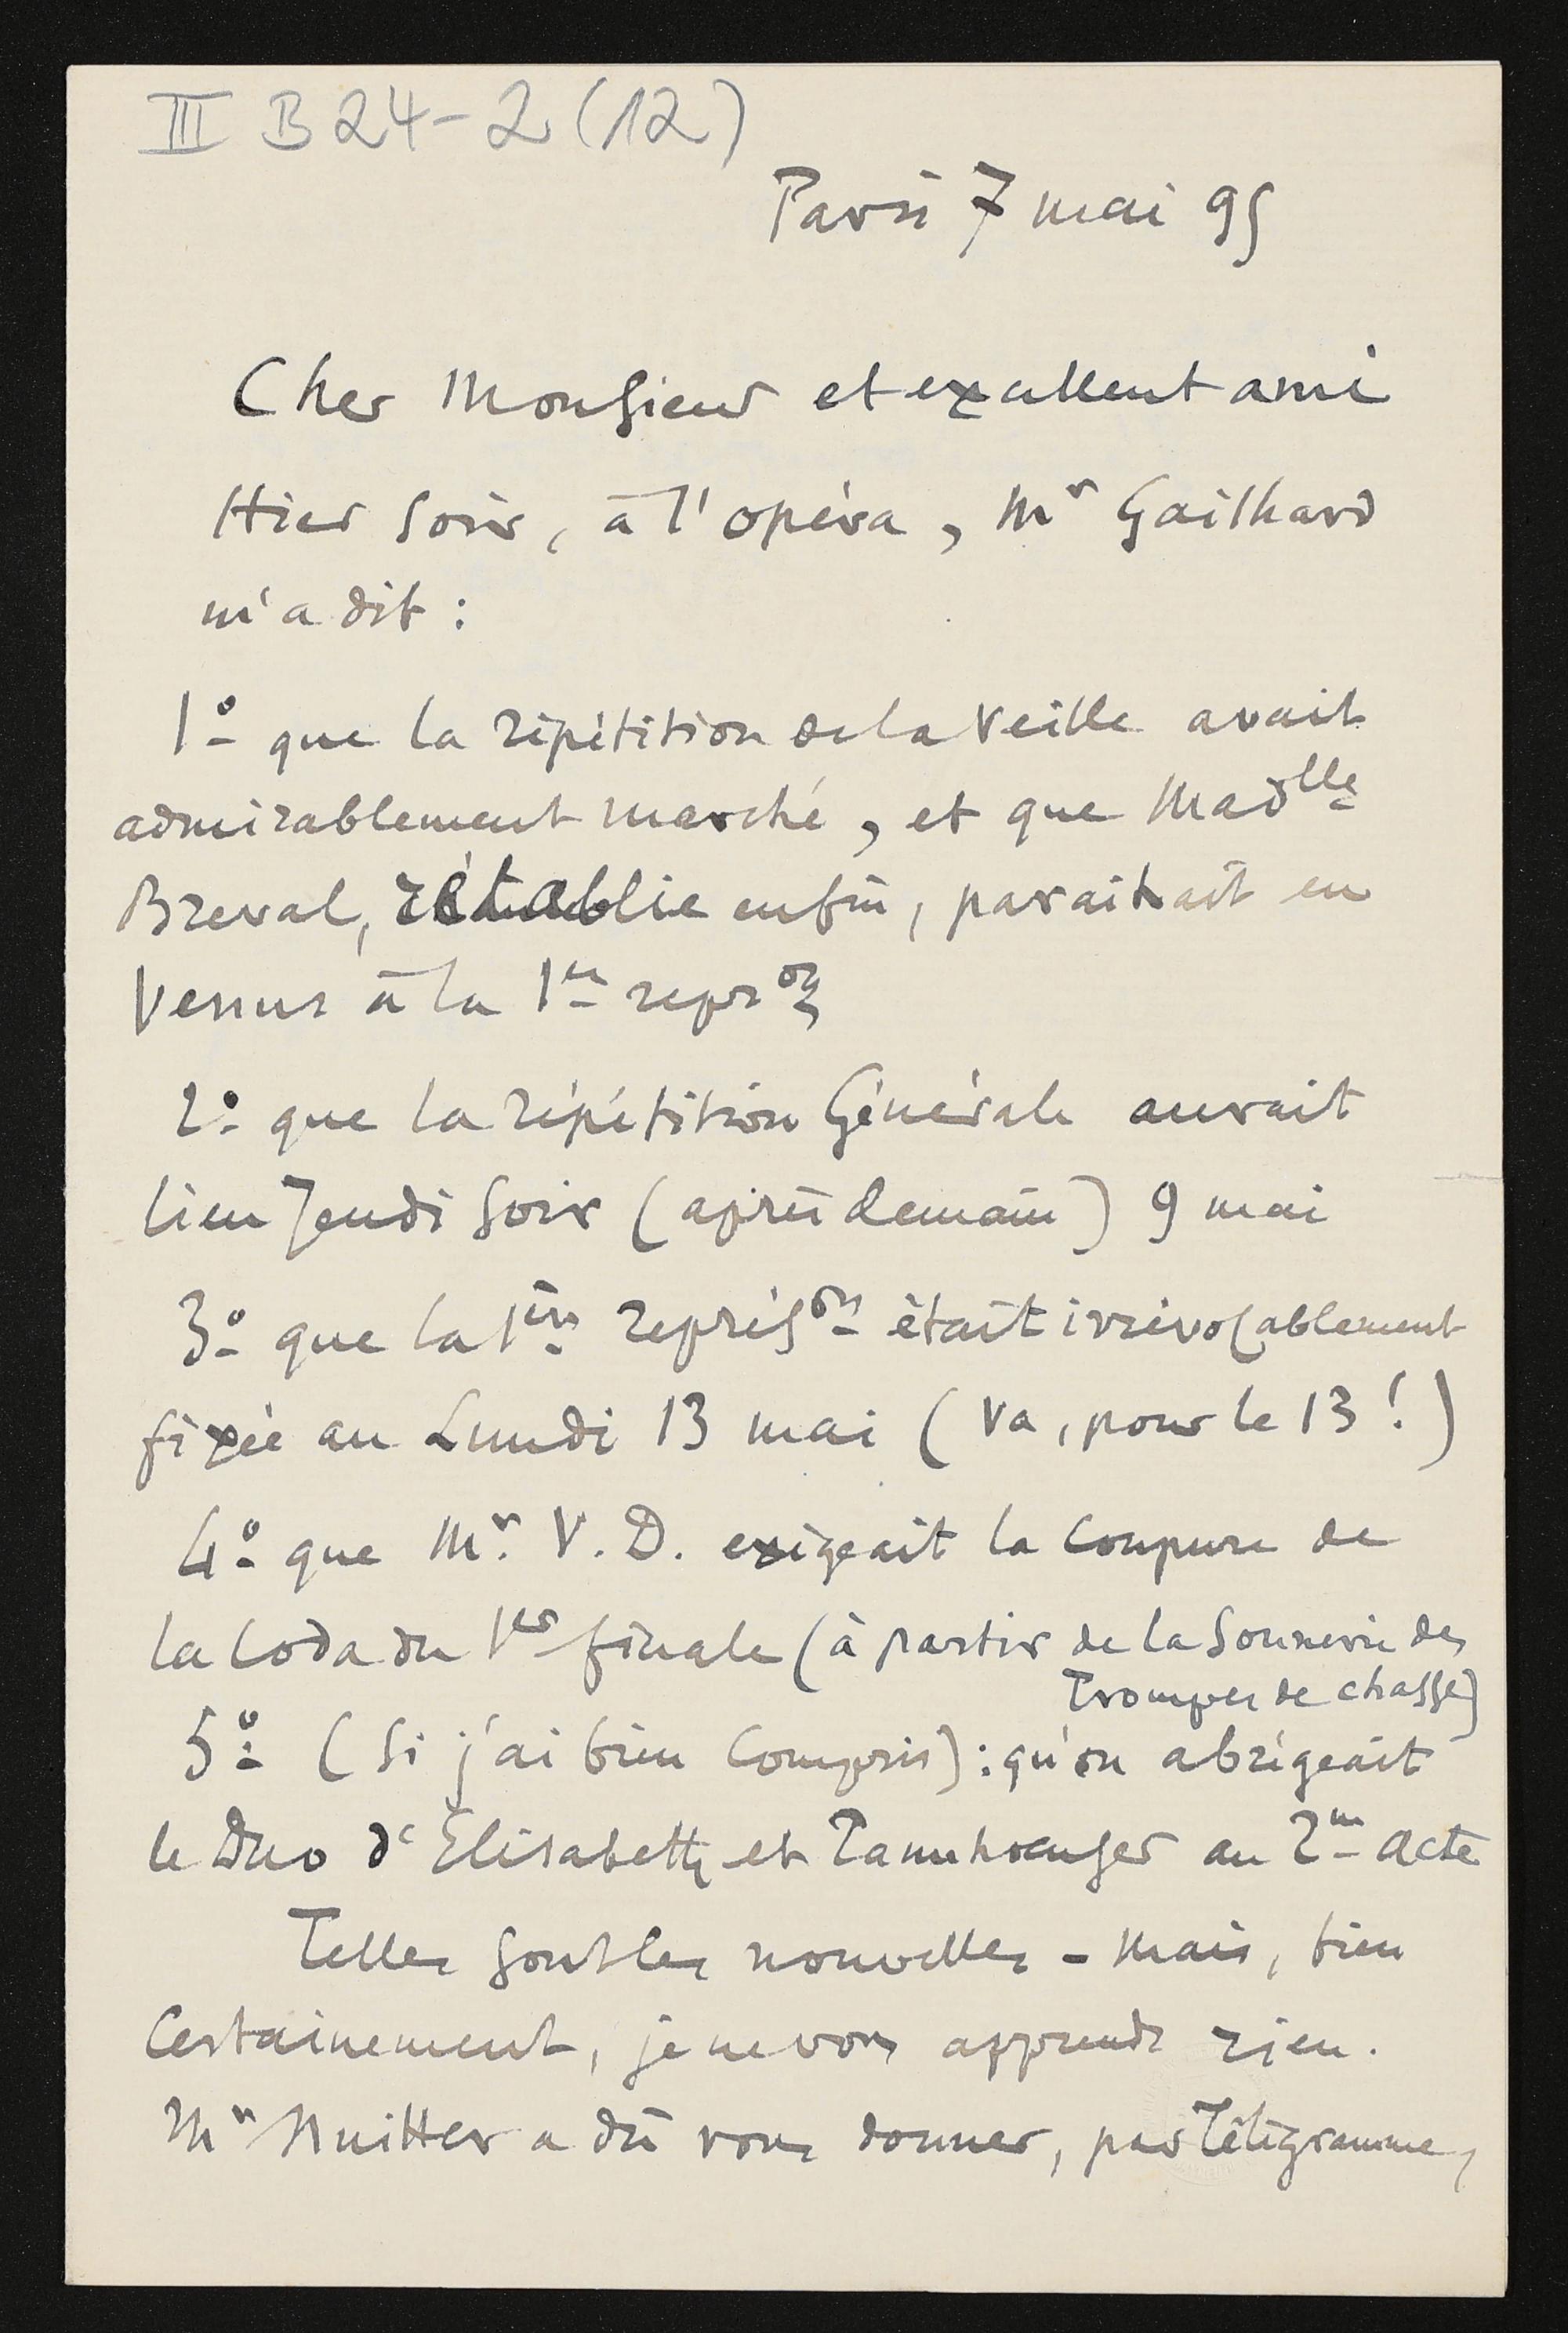 III B 24-2 (12)
Paris 7 mai 95
Cher Monsieur et excellent ami
Hier soir, à l'opéra, Mr Gailhard
m'a dit :
1º que la répétition de la veille avait
admirablement marché, et que Madlle
Breval, rétablie enfin, paraitrait en
Venus à la 1re repron
2º que la répétition Générale aurait
lieu Jeudi soir (après demain) 9 mai
3º que la 1ère représon était irrévocablement
fixée au Lundi 13 mai (va, pour le 13 !)
4º que Mr. V. D. exigeait la coupure de
la Coda du 1er finale (à partir de la Sonnerie des
Trompes de chasse)
5º (si j'ai bien compris) : qu'on abrégeait
le Duo d'Elisabeth et Tannhaeuser au 2me acte
Telles sont les nouvelles - Mais, bien
certainement, je ne vous apprends rien.
Mr Nuitter a dû vous donner, par Télégramme,